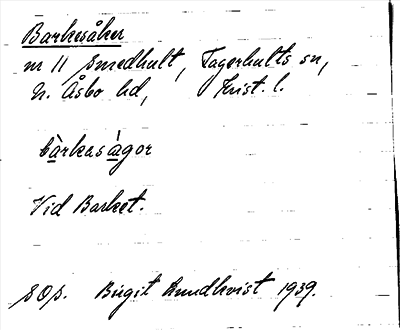 Barkesåker
nr 11 Smedhult, Fagerhults sn,
N. Åsbo hd, Krist. l.
bàrkasàgor
Vid Barket.
SOp. Birgit Lundkvist 1939.